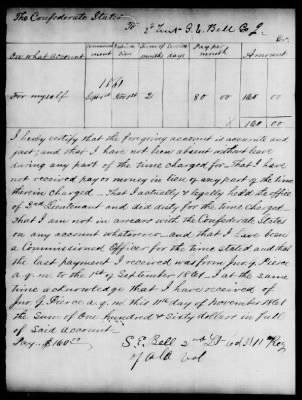 The Confederate States
To 2d Lieut S. L. Bell Co I. Dr.
On what account Commencement Expiration Term of service months days Pay per month Amount
1861
For myself Sept 1st Nov 1st 2 80 00 160 00
$ 160 00
I hereby certify that the foregoing account is accurate and
just; and that I have not been absent without leave
during any part of the time charged for. That I have
not received pay or money in lieu of any part of the time
therein charged. That I actually & legally hold the office
of 2nd Lieutenant and did duty for the time charged.
That I am not in arrears with the Confederate States
on any account whatsoever and that I have been
a Commissioned Officer for the time stated and that
the last payment I received was from Jno. J. Pierce
a.q.m. to the 1st of September 1861. I at the same
time acknowledge that I have received of
Jno. J. Pierce a.q.m. this 11th day of November 1861
the sum of One hundred & Sixty dollars in full
of said account.
Pay. $160.00 S. L. Bell 2nd Lt Co I 11 Reg
of Ala Vol